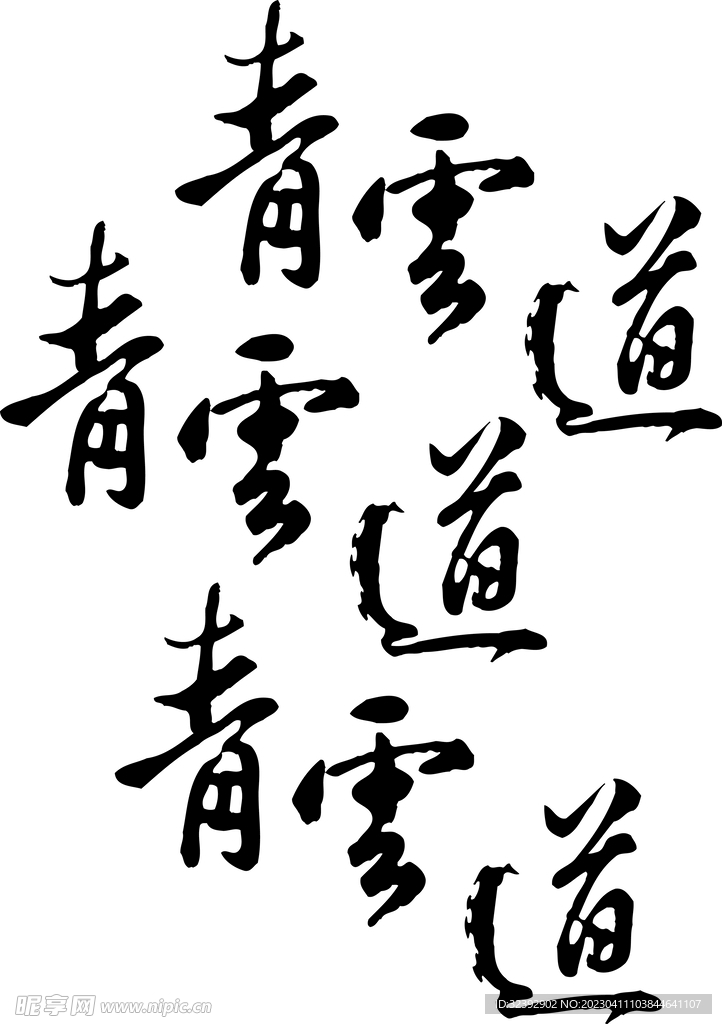 青雲道
青雲道
青雲道
昵享网 www.nipic.cn
ID:32392902 NO:20230411103844641107